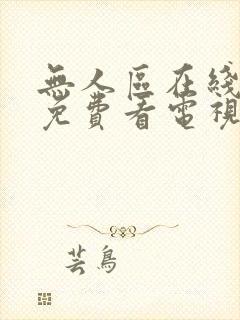 無人區在綫
免費看電視
芸鳥